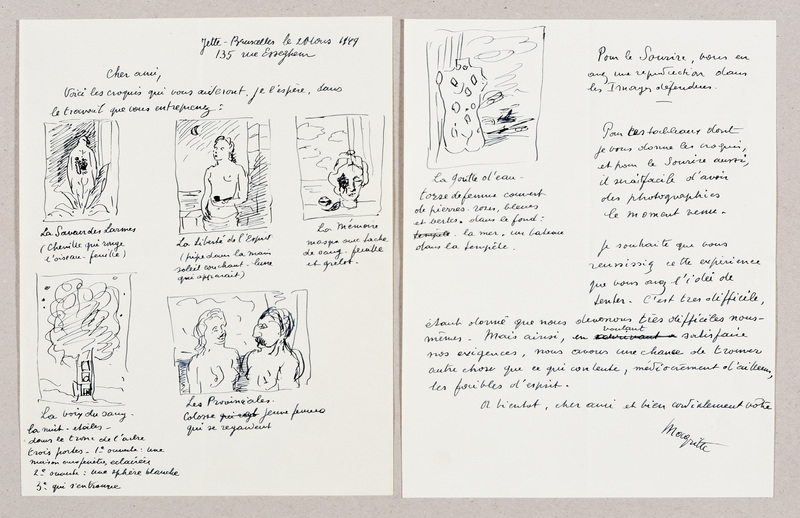 Jette-Bruxelles le 20 mars 1949
135 rue Esseghem
Cher ami,
Voici les croquis qui vous aideront, je l'espère, dans
le travail que vous entreprenez :
La Saveur des Larmes
(Chenille qui ronge
l'oiseau-feuille)
La Liberté de l'Esprit
(pipe dans la main
soleil couchant - lune
qui apparait)
La Mémoire
masque avec tache
de sang - feuille
et grelot.
La voix du sang -
La nuit - étoiles -
dans le tronc de l'arbre
trois portes - 1° ouverte : une
maison éclairée
2° ouverte : une sphère blanche
3° qui s'entrouvre
Les Provinciales.
Colosse jeune femme
qui se regardent
La goutte d'eau -
torse de femme couvert
de pierres roses, bleues
et vertes. dans le fond :
la mer - un bateau
dans la tempête.
Pour le Sourire, vous en
avez une reproduction dans
les Images défendues.
Pour les tableaux dont
je vous donne les croquis,
et pour le Sourire aussi,
il serait facile d'avoir
des photographies
le moment venu.
Je souhaite que vous
réussissiez cette expérience
que vous avez l'idée de
tenter. C'est très difficile,
étant donné que nous devenons très difficiles nous-
mêmes. Mais ainsi, en voulant satisfaire
nos exigences, nous avons une chance de trouver
autre chose que ce qui contente, médiocrement d'ailleurs,
les faibles d'esprit.
A bientôt, cher ami et bien cordialement vôtre
Magritte